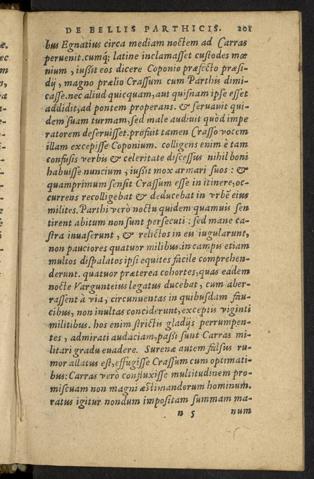 DE BELLIS PARTHICIS. 201
bus Egnatius circa mediam noctem ad Carras
peruenit. cumq́; latine inclamasset custodes mœ
nium, iußit eos dicere Coponio præfecto præsi-
dij, magno prælio Crassum cum Parthis dimi-
casse. nec aliud quicquam, aut quisnam ipse esset
addidit, ad pontem properans. & seruauit qui-
dem suam turmam, sed male audiuit quòd impe
ratorem deseruisset. profuit tamen Crasso vocem
illam excepisse Coponium. colligens enim è tam
confusis verbis & celeritate discessus nihil boni
habuisse nuncium, iußit mox armari suos: &
quamprimum sensit Crassum esse in itinere, oc-
currens recolligebat & deducebat in vrbē eius
milites. Parthi verò noctu quidem quamuis sen
tirent abitum non sunt persecuti: sed mane ca-
stra inuaserunt, & relictos in eis iugularunt,
non pauciores quatuor milibus. in campis etiam
multos dispalatos ipsi equites facile comprehen-
derunt. quatuor præterea cohortes, quas eadem
nocte Vargunteius legatus ducebat, cum aber-
rassent à via, circumuentas in quibusdam fau-
cibus, non inultas conciderunt, exceptis viginti
militibus. hos enim strictis gladijs perrumpen-
tes, admirati audaciam, paßi sunt Carras mi-
litari gradu euadere. Surenæ autem falsus ru-
mor allatus est, effugisse Crassum cum optimati-
bus: Carras verò confluxisse multitudinem pro-
miscuam non magni æstimandorum hominum.
ratus igitur nondum impositam summam ma-
n 5 num